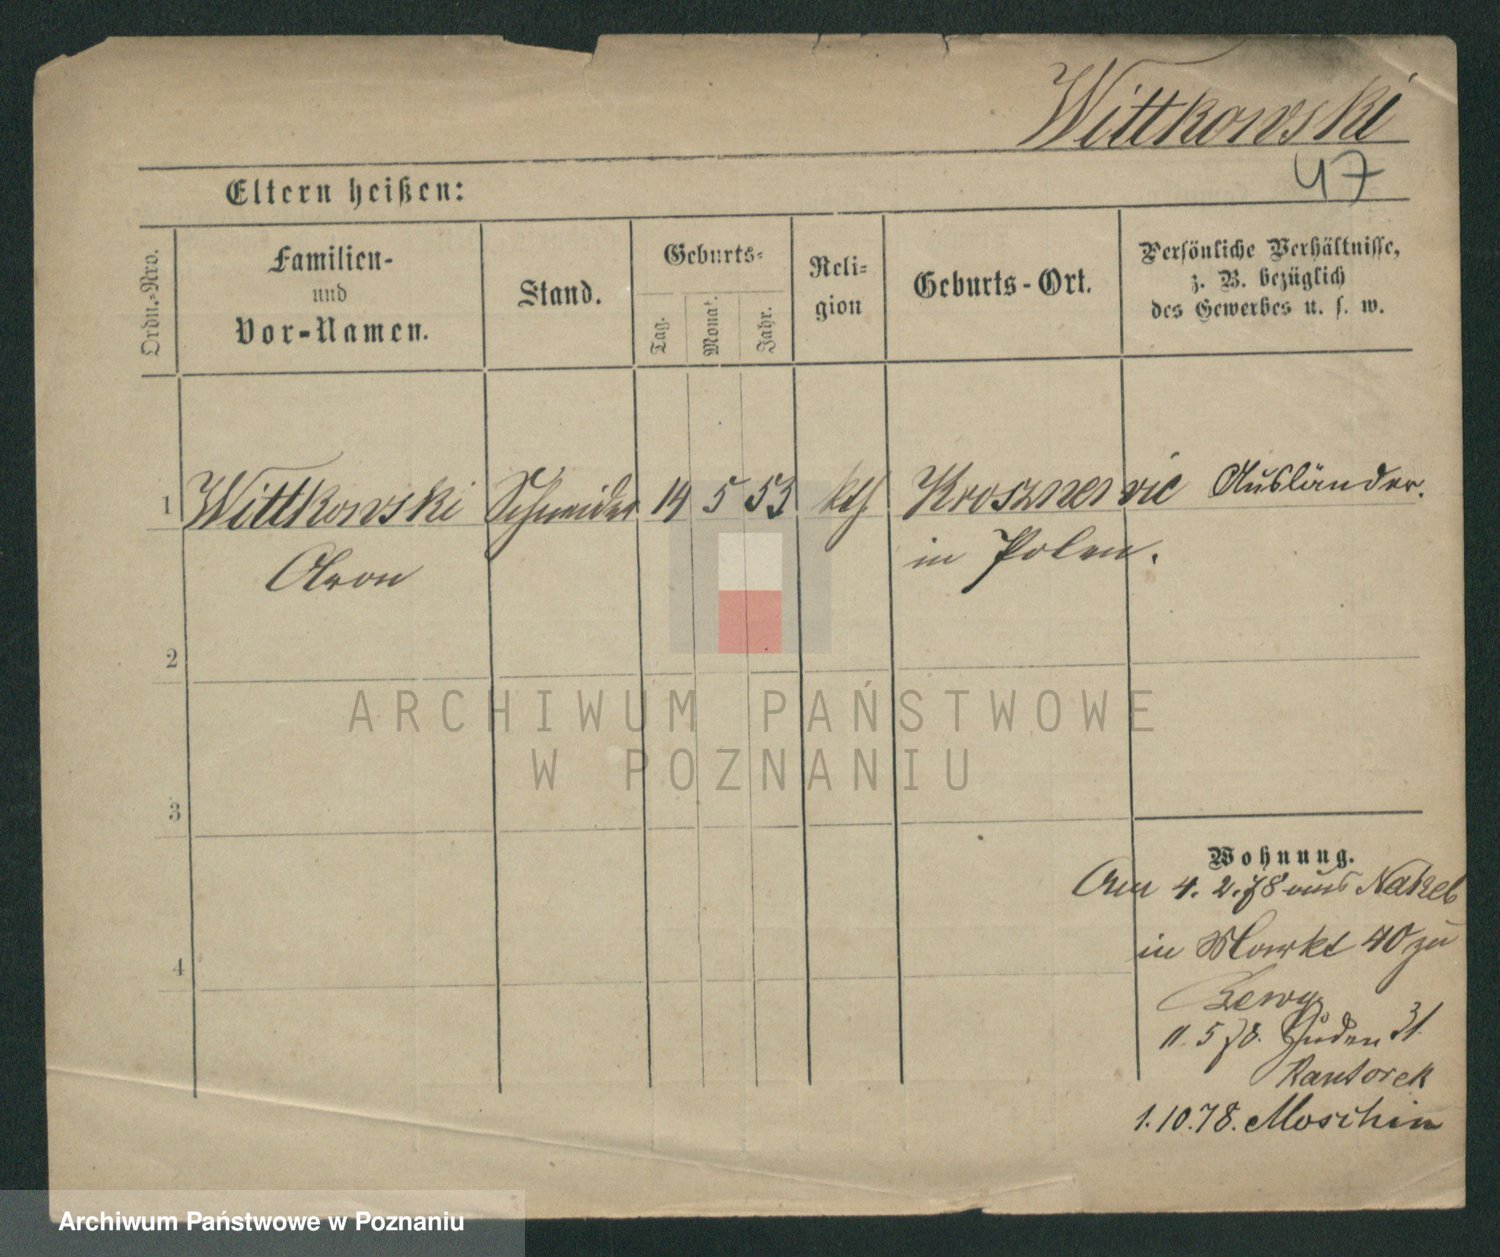 Wittkowski
47
Eltern heißen:
Ordn.-Nro.
Familien-
und
Vor-Namen.
Stand.
Geburts-
Tag.
Monat.
Jahr.
Reli-
gion
Geburts-Ort.
Persönliche Verhältnisse,
z. B. bezüglich
des Gewerbes u. s. w.
1 Wittkowski Schneider 14 5 53 kth Ausländer.
in Polen.
2
ARCHIWUM PAŃSTWOWE
W POZNANIU
3
Wohnung.
Am 4. 2. 78 aus Nakel
in Markt 40 zu
4
11. 5 78. Juden 31.
Kantorek
1. 10. 78. Moschin
Archiwum Państwowe w Poznaniu